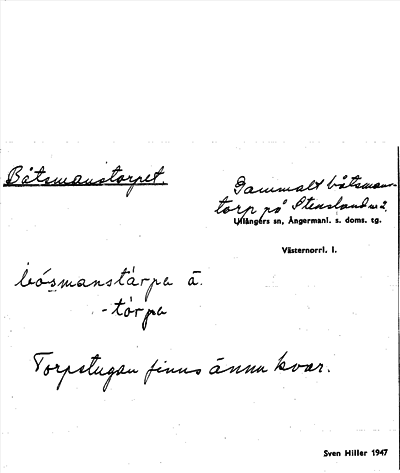 Båtsmanstorpet.
Gammalt båtsmans-
torp på Stensland nr 2.
Ullångers sn, Ångermanl. s. doms. tg.
Västernorrl. l.
bósmanstàrpa ā.
-tòrpa
Torpstugan finns ännu kvar.
Sven Hiller 1947